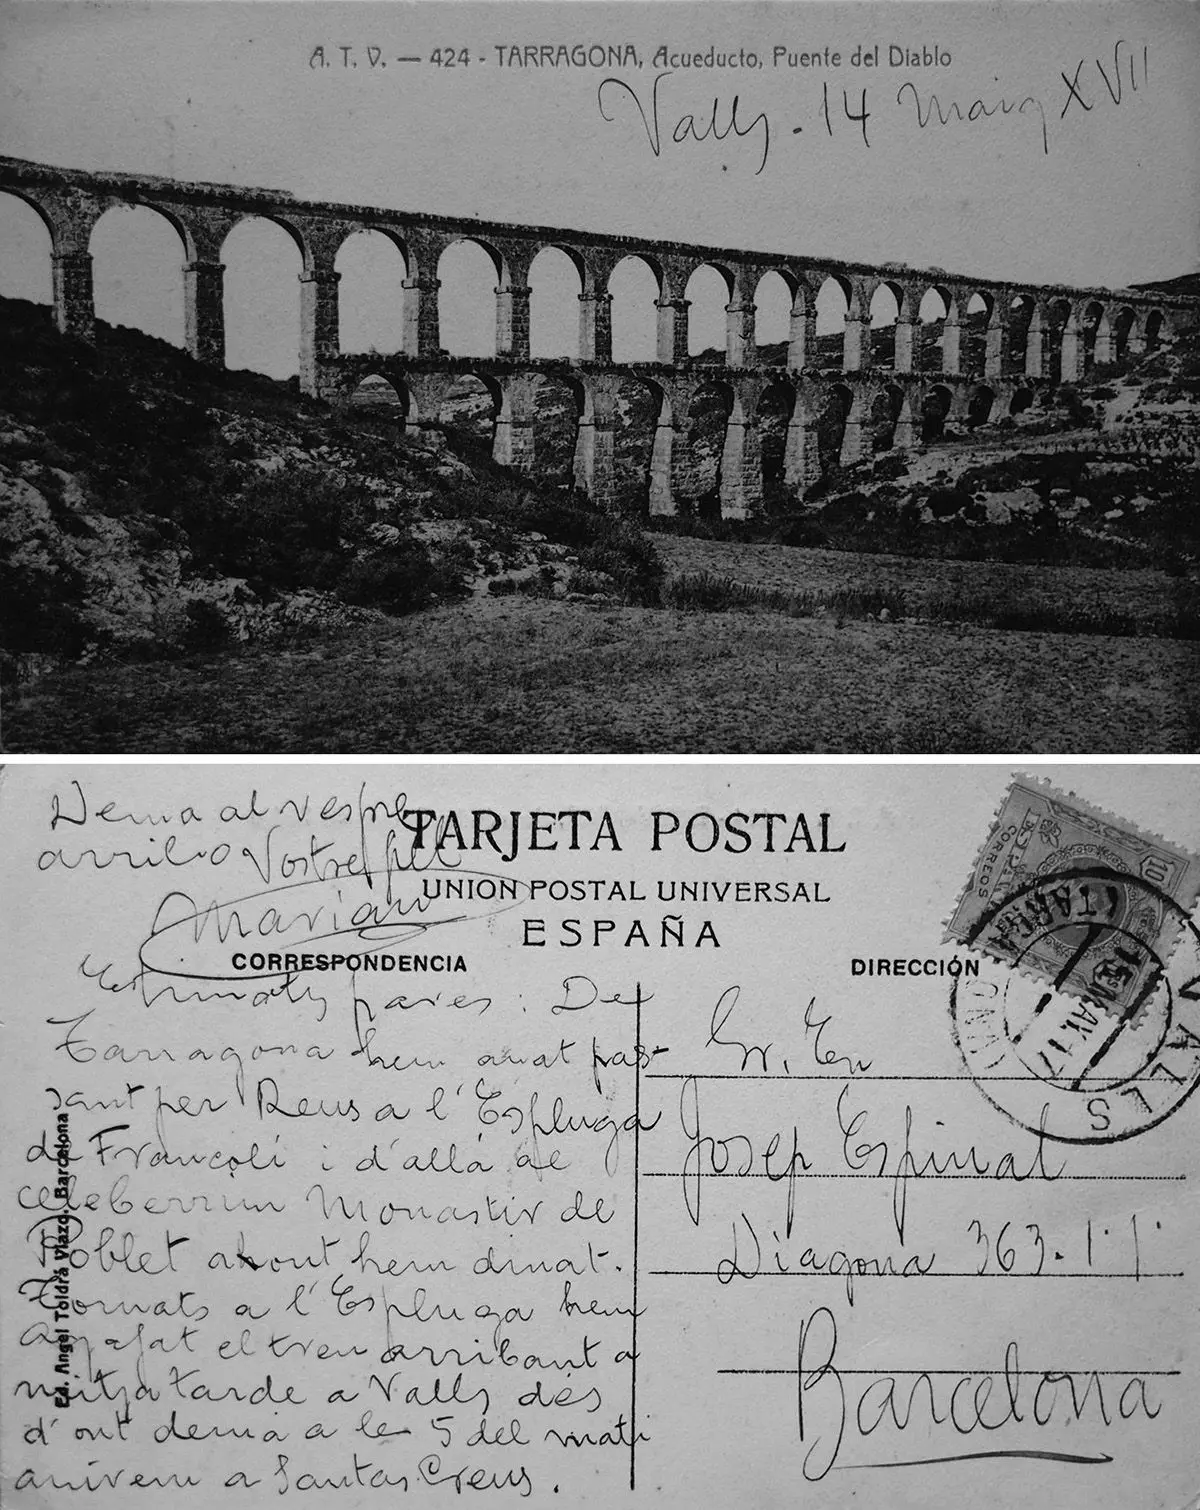 A. T. V. — 424 - TARRAGONA, Acueducto, Puente del Diablo
Valls - 14 Maig XVII
Demà al vespre
arribo Vostre fill
Marian
TARJETA POSTAL
UNION POSTAL UNIVERSAL
ESPAÑA
CORRESPONDENCIA
Estimats pares: De
Tarragona hem anat pas-
sant per Reus a l'Espluga
de Francolí i d'allá al
celeberrim Monastir de
Poblet ahont hem dinat.
Tornats a l'Espluga hem
agafat el tren arribant a
mitja tarde a Valls des
d'ont demà a le 5 del mati
anirem a Santas Creus.
Ed. Angel Toldrá Viazo. Barcelona
DIRECCIÓN
Sr. En
Josep Espinal
Diagonal 363-1º 1ª
Barcelona
CORREOS
10
15 MAY. 17
VALLS